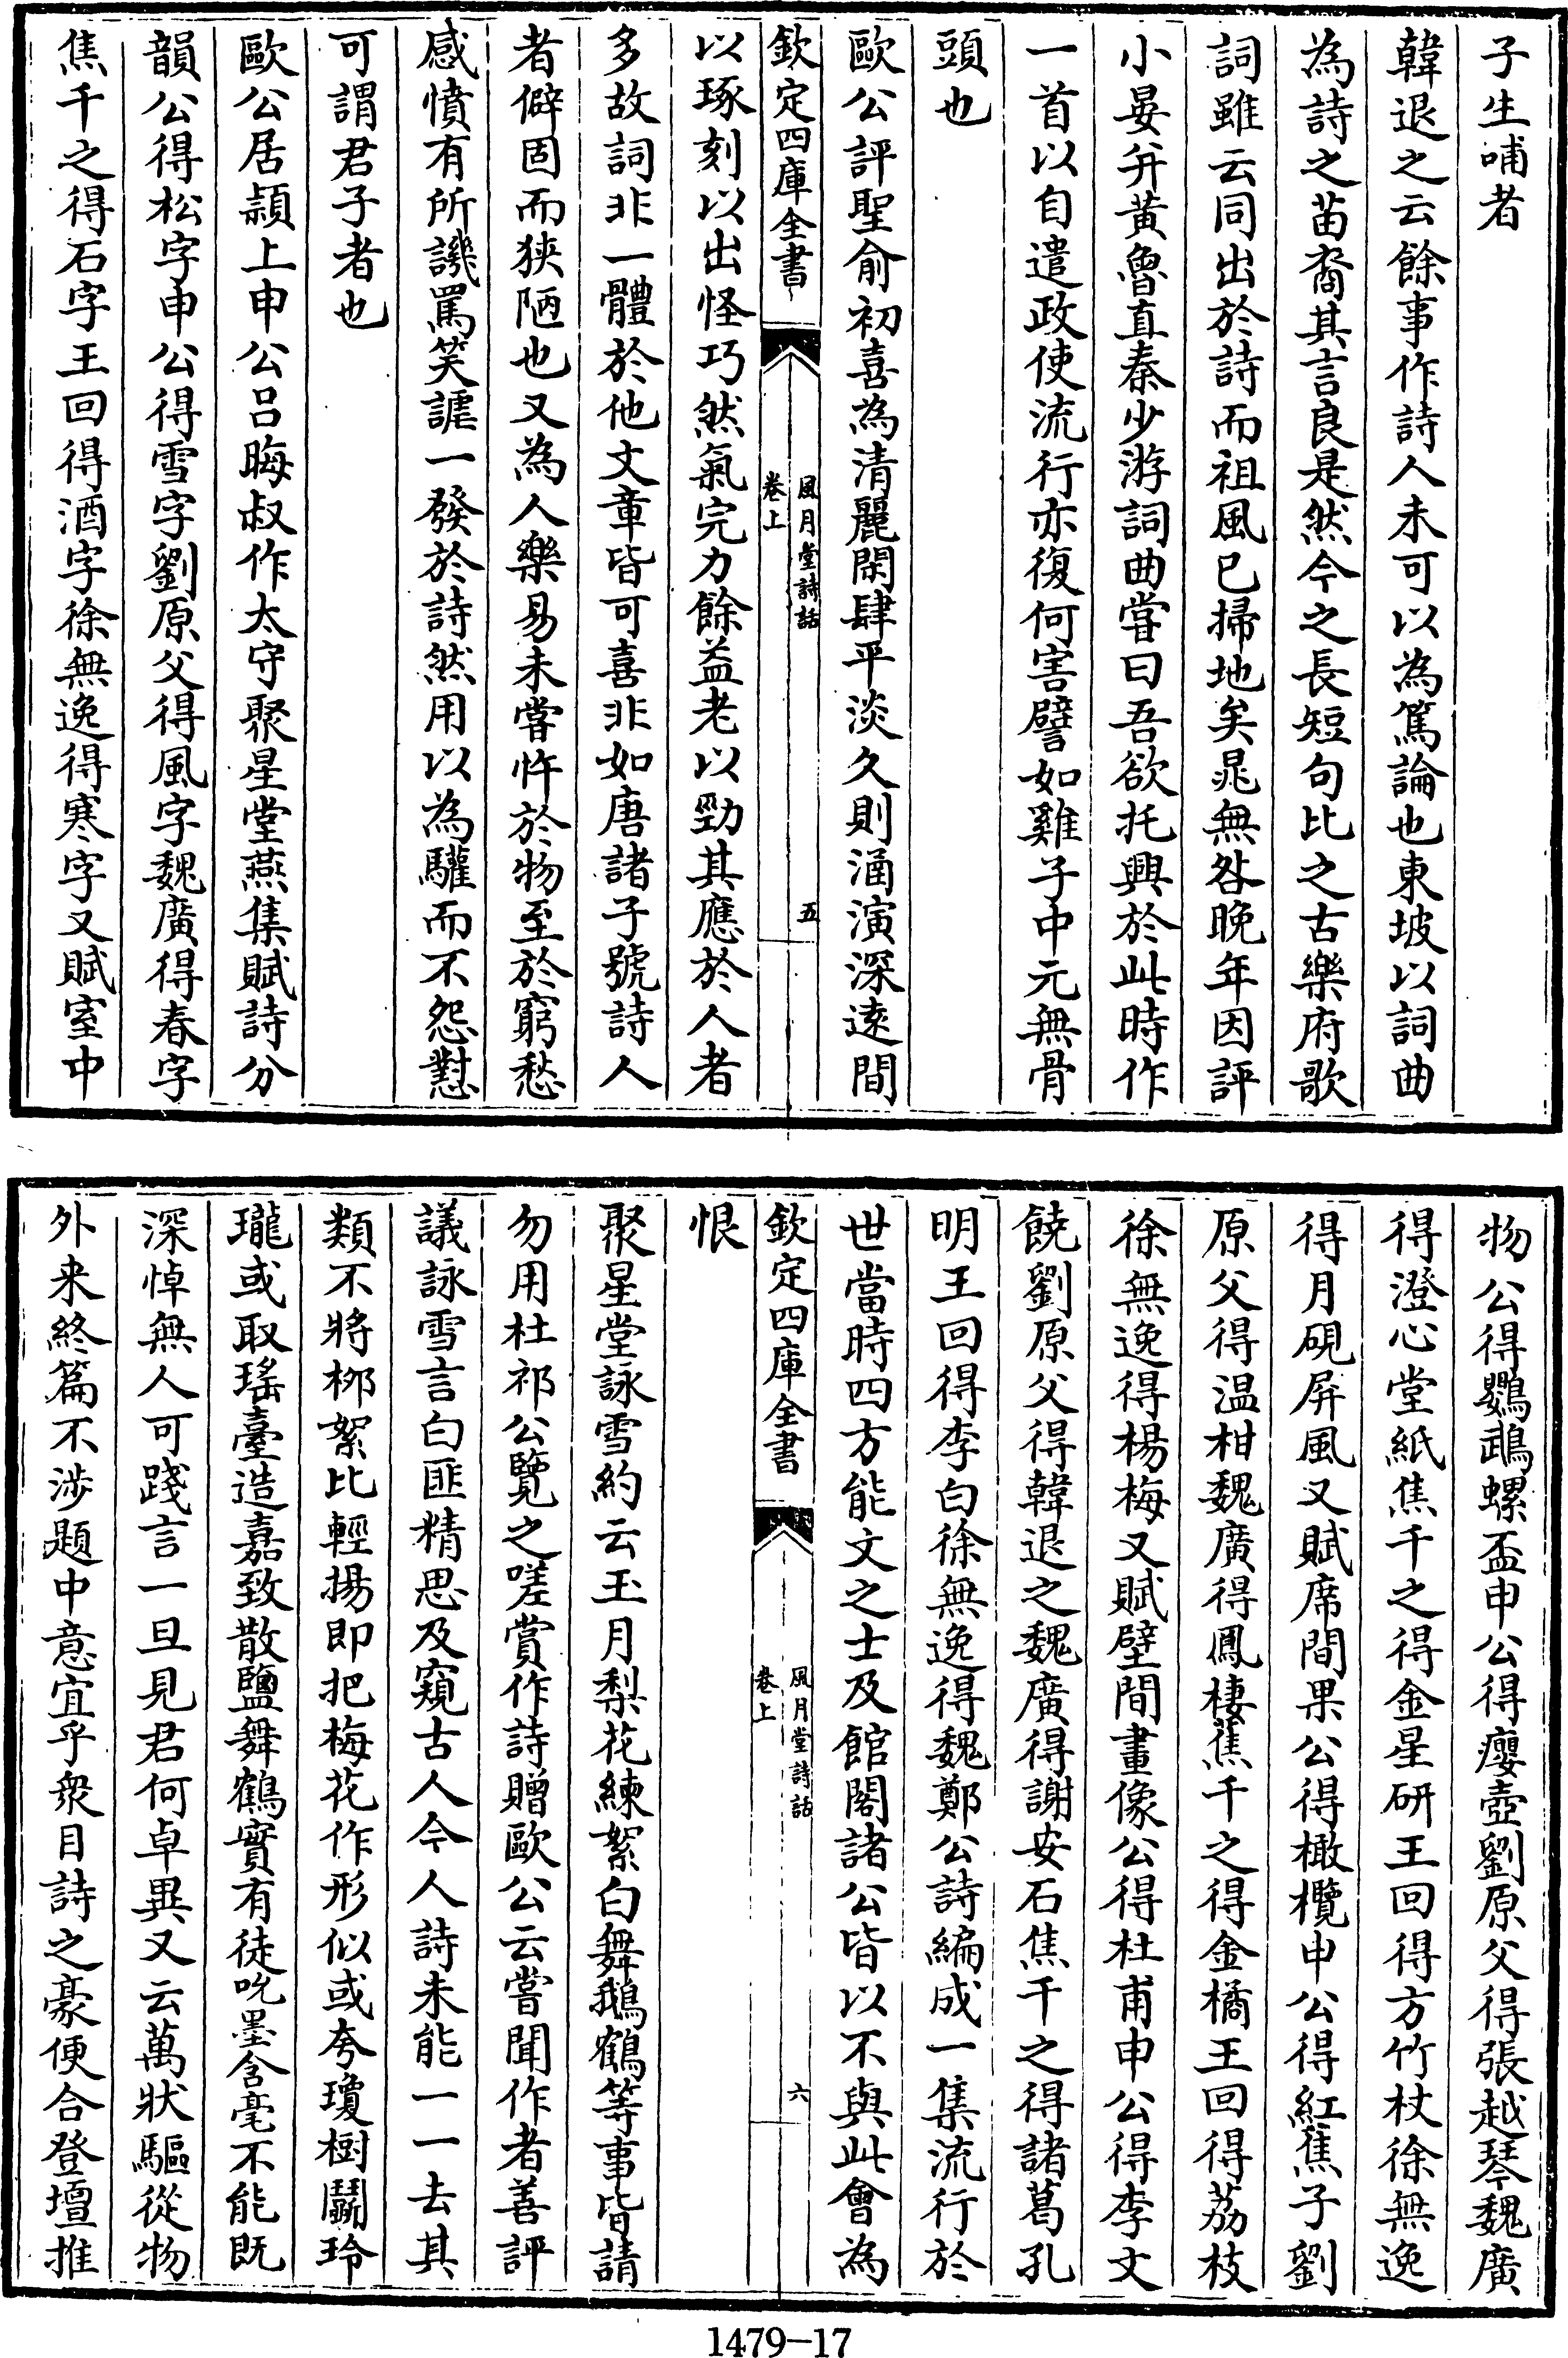 子生哺者
韓退之云餘事作詩人未可以為篤論也東坡以詞曲
為詩之苗裔其言良是然今之長短句比之古樂府歌
詞雖云同出於詩而祖風已掃地矣晁無咎晚年因評
小晏并黄魯直秦少游詞曲嘗曰吾欲托興於此時作
一首以自遣政使流行亦復何害譬如雞子中元無骨
頭也
歐公評聖俞初喜為清麗閑肆平淡久則涵演深逺間
欽定四庫全書
風月堂詩話
卷上
五
以琢刻以出怪巧然氣完力餘益老以勁其應於人者
多故詞非一體於他文章皆可喜非如唐諸子號詩人
者僻固而狹陋也又為人樂易未嘗忤於物至於窮愁
感憤有所譏罵笑謔一發於詩然用以為驩而不怨懟
可謂君子者也
歐公居潁上申公吕晦叔作太守聚星堂燕集賦詩分
韻公得松字申公得雪字劉原父得風字魏廣得春字
焦千之得石字王回得酒字徐無逸得寒字又賦室中
物公得鸚鵡螺盃申公得癭壺劉原父得張越琴魏廣
得澄心堂紙焦千之得金星研王回得方竹杖徐無逸
得月硯屏風又賦席間果公得橄欖申公得紅蕉子劉
原父得温柑魏廣得鳳棲蕉千之得金橘王回得荔枝
徐無逸得楊梅又賦壁間畫像公得杜甫申公得李文
饒劉原父得韓退之魏廣得謝安石焦千之得諸葛孔
明王回得李白徐無逸得魏鄭公詩編成一集流行於
世當時四方能文之士及館閣諸公皆以不與此會為
欽定四庫全書
風月堂詩話
卷上
六
恨
聚星堂詠雪約云玉月梨花練絮白舞鵝鶴等事皆請
勿用杜祁公覽之嗟賞作詩贈歐公云嘗聞作者善評
議詠雪言白匪精思及窺古人今人詩未能一一去其
類不將栁絮比輕揚即把梅花作形似或夸瓊樹鬭玲
瓏或取瑤臺造嘉致散鹽舞鶴實有徒吮墨含毫不能既
深悼無人可踐言一旦見君何卓異又云萬狀驅從物
外来終篇不涉題中意宜乎衆目詩之豪便合登壇推
1479-17